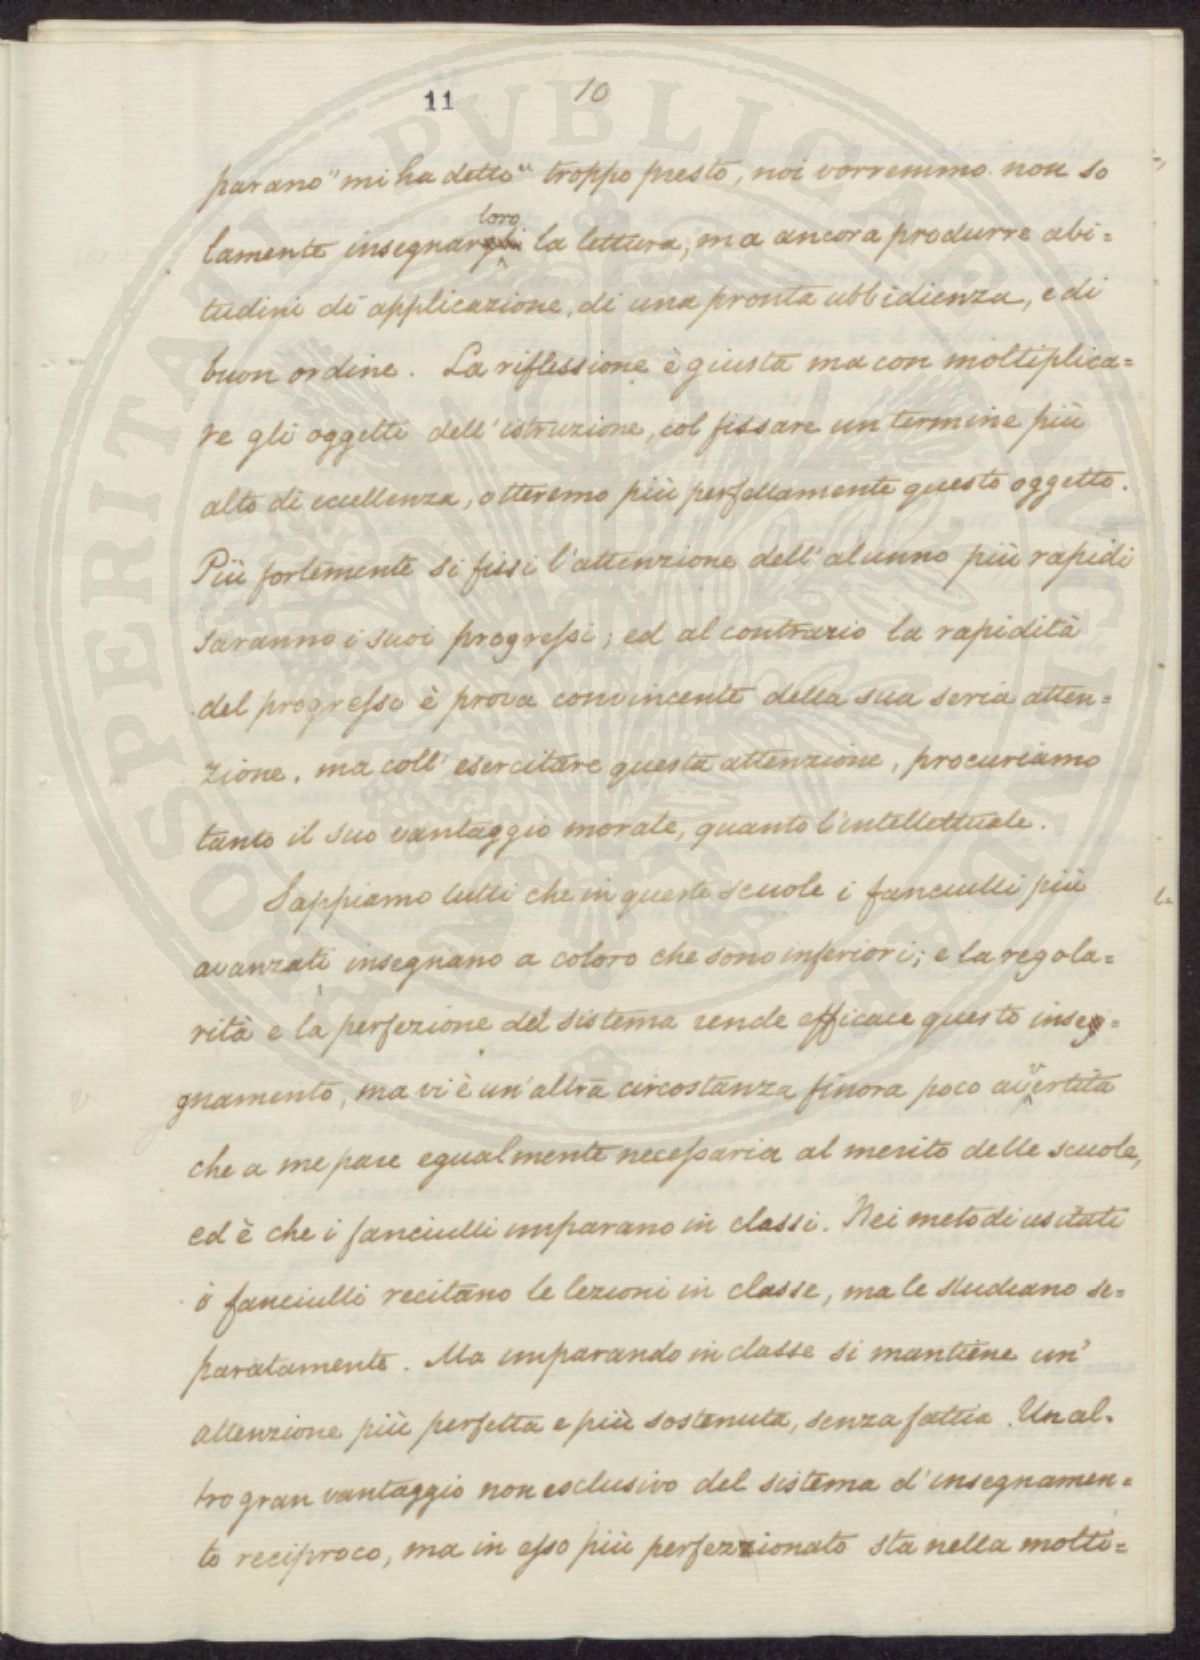 11
10
parano "mi ha detto" troppo presto, noi vorremmo non so
lamente insegnar loro la lettura, ma ancora produrre abi=
tudini di applicazione, di una pronta ubbidienza, e di
buon ordine. La riflessione è giusta ma con moltiplica=
re gli oggetti dell'istruzione, col fissare un termine più
alto di eccellenza, otteremo più perfettamente questo oggetto.
Più fortemente si fissi l'attenzione dell'alunno più rapidi
saranno i suoi progressi; ed al contrario la rapidità
del progresso è prova convincente della sua seria atten=
zione, ma coll'esercitare questa attenzione, procuriamo
tanto il suo vantaggio morale, quanto l'intellettuale.
Sappiamo tutti che in queste scuole i fanciulli più
avanzati insegnano a coloro che sono inferiori; e la regola=
rità e la perfezione del sistema rende efficace questo inse=
gnamento, ma vi è un'altra circostanza finora poco avvertita
che a me pare egualmente necessaria al merito delle scuole,
ed è che i fanciulli imparano in classi. Nei metodi usitati
i fanciulli recitano le lezioni in classe, ma le studiano se=
paratamente. Ma imparando in classe si mantiene un'
attenzione più perfetta e più sostenuta, senza fatica. Un al=
tro gran vantaggio non esclusivo del sistema d'insegnamen=
to reciproco, ma in esso più perfezzionato sta nella molti=
PROSPERITATI PVBLICAE AVGENDAE